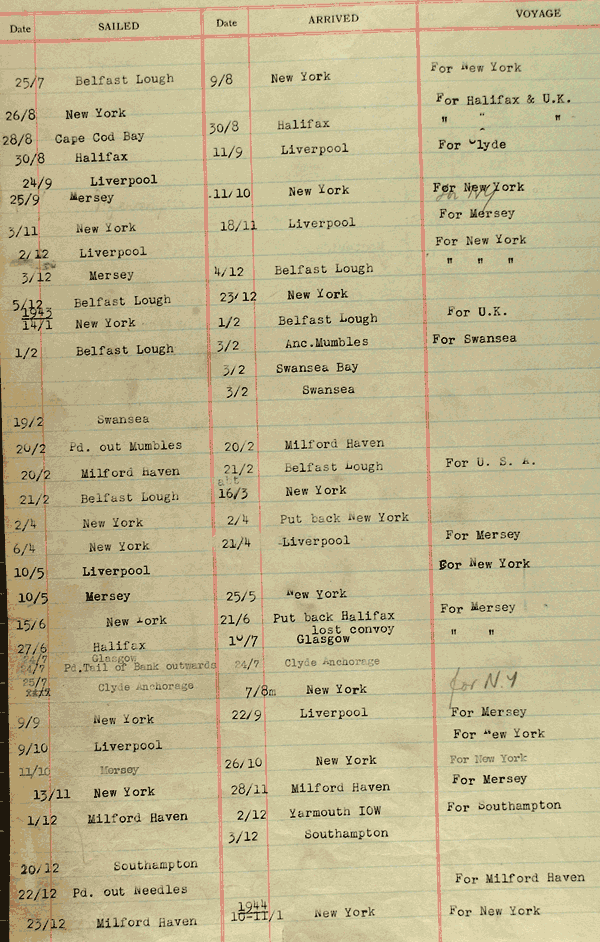 Date SAILED Date ARRIVED VOYAGE
25/7 Belfast Lough 9/8 New York For New York
26/8 New York For Halifax & U.K.
28/8 Cape Cod Bay 30/8 Halifax " " "
30/8 Halifax 11/9 Liverpool For Clyde
24/9 Liverpool
25/9 Mersey 11/10 New York For New York
for NY
3/11 New York 18/11 Liverpool For Mersey
2/12 Liverpool For New York
3/12 Mersey 4/12 Belfast Lough " " "
5/12 Belfast Lough 23/12 New York
1943
14/1 New York 1/2 Belfast Lough For U.K.
1/2 Belfast Lough 3/2 Anc.Mumbles For Swansea
3/2 Swansea Bay
3/2 Swansea
19/2 Swansea
20/2 Pd. out Mumbles 20/2 Milford Haven
20/2 Milford Haven 21/2 Belfast Lough For U. S. A.
abt
21/2 Belfast Lough 16/3 New York
2/4 New York 2/4 Put back New York
6/4 New York 21/4 Liverpool For Mersey
10/5 Liverpool For New York
10/5 Mersey 25/5 New York
15/6 New York 21/6 Put back Halifax For Mersey
lost convoy
27/6 Halifax 10/7 Glasgow " "
24/7 Glasgow
24/7 Pd.Tail of Bank outwards 24/7 Clyde Anchorage
25/7
Clyde Anchorage 7/8m New York for N.Y
9/9 New York 22/9 Liverpool For Mersey
9/10 Liverpool For New York
11/10 Mersey 26/10 New York For New York
13/11 New York 28/11 Milford Haven For Mersey
1/12 Milford Haven 2/12 Yarmouth IOW For Southampton
3/12 Southampton
20/12 Southampton
22/12 Pd. out Needles For Milford Haven
1944
23/12 Milford Haven 10-11/1 New York For New York